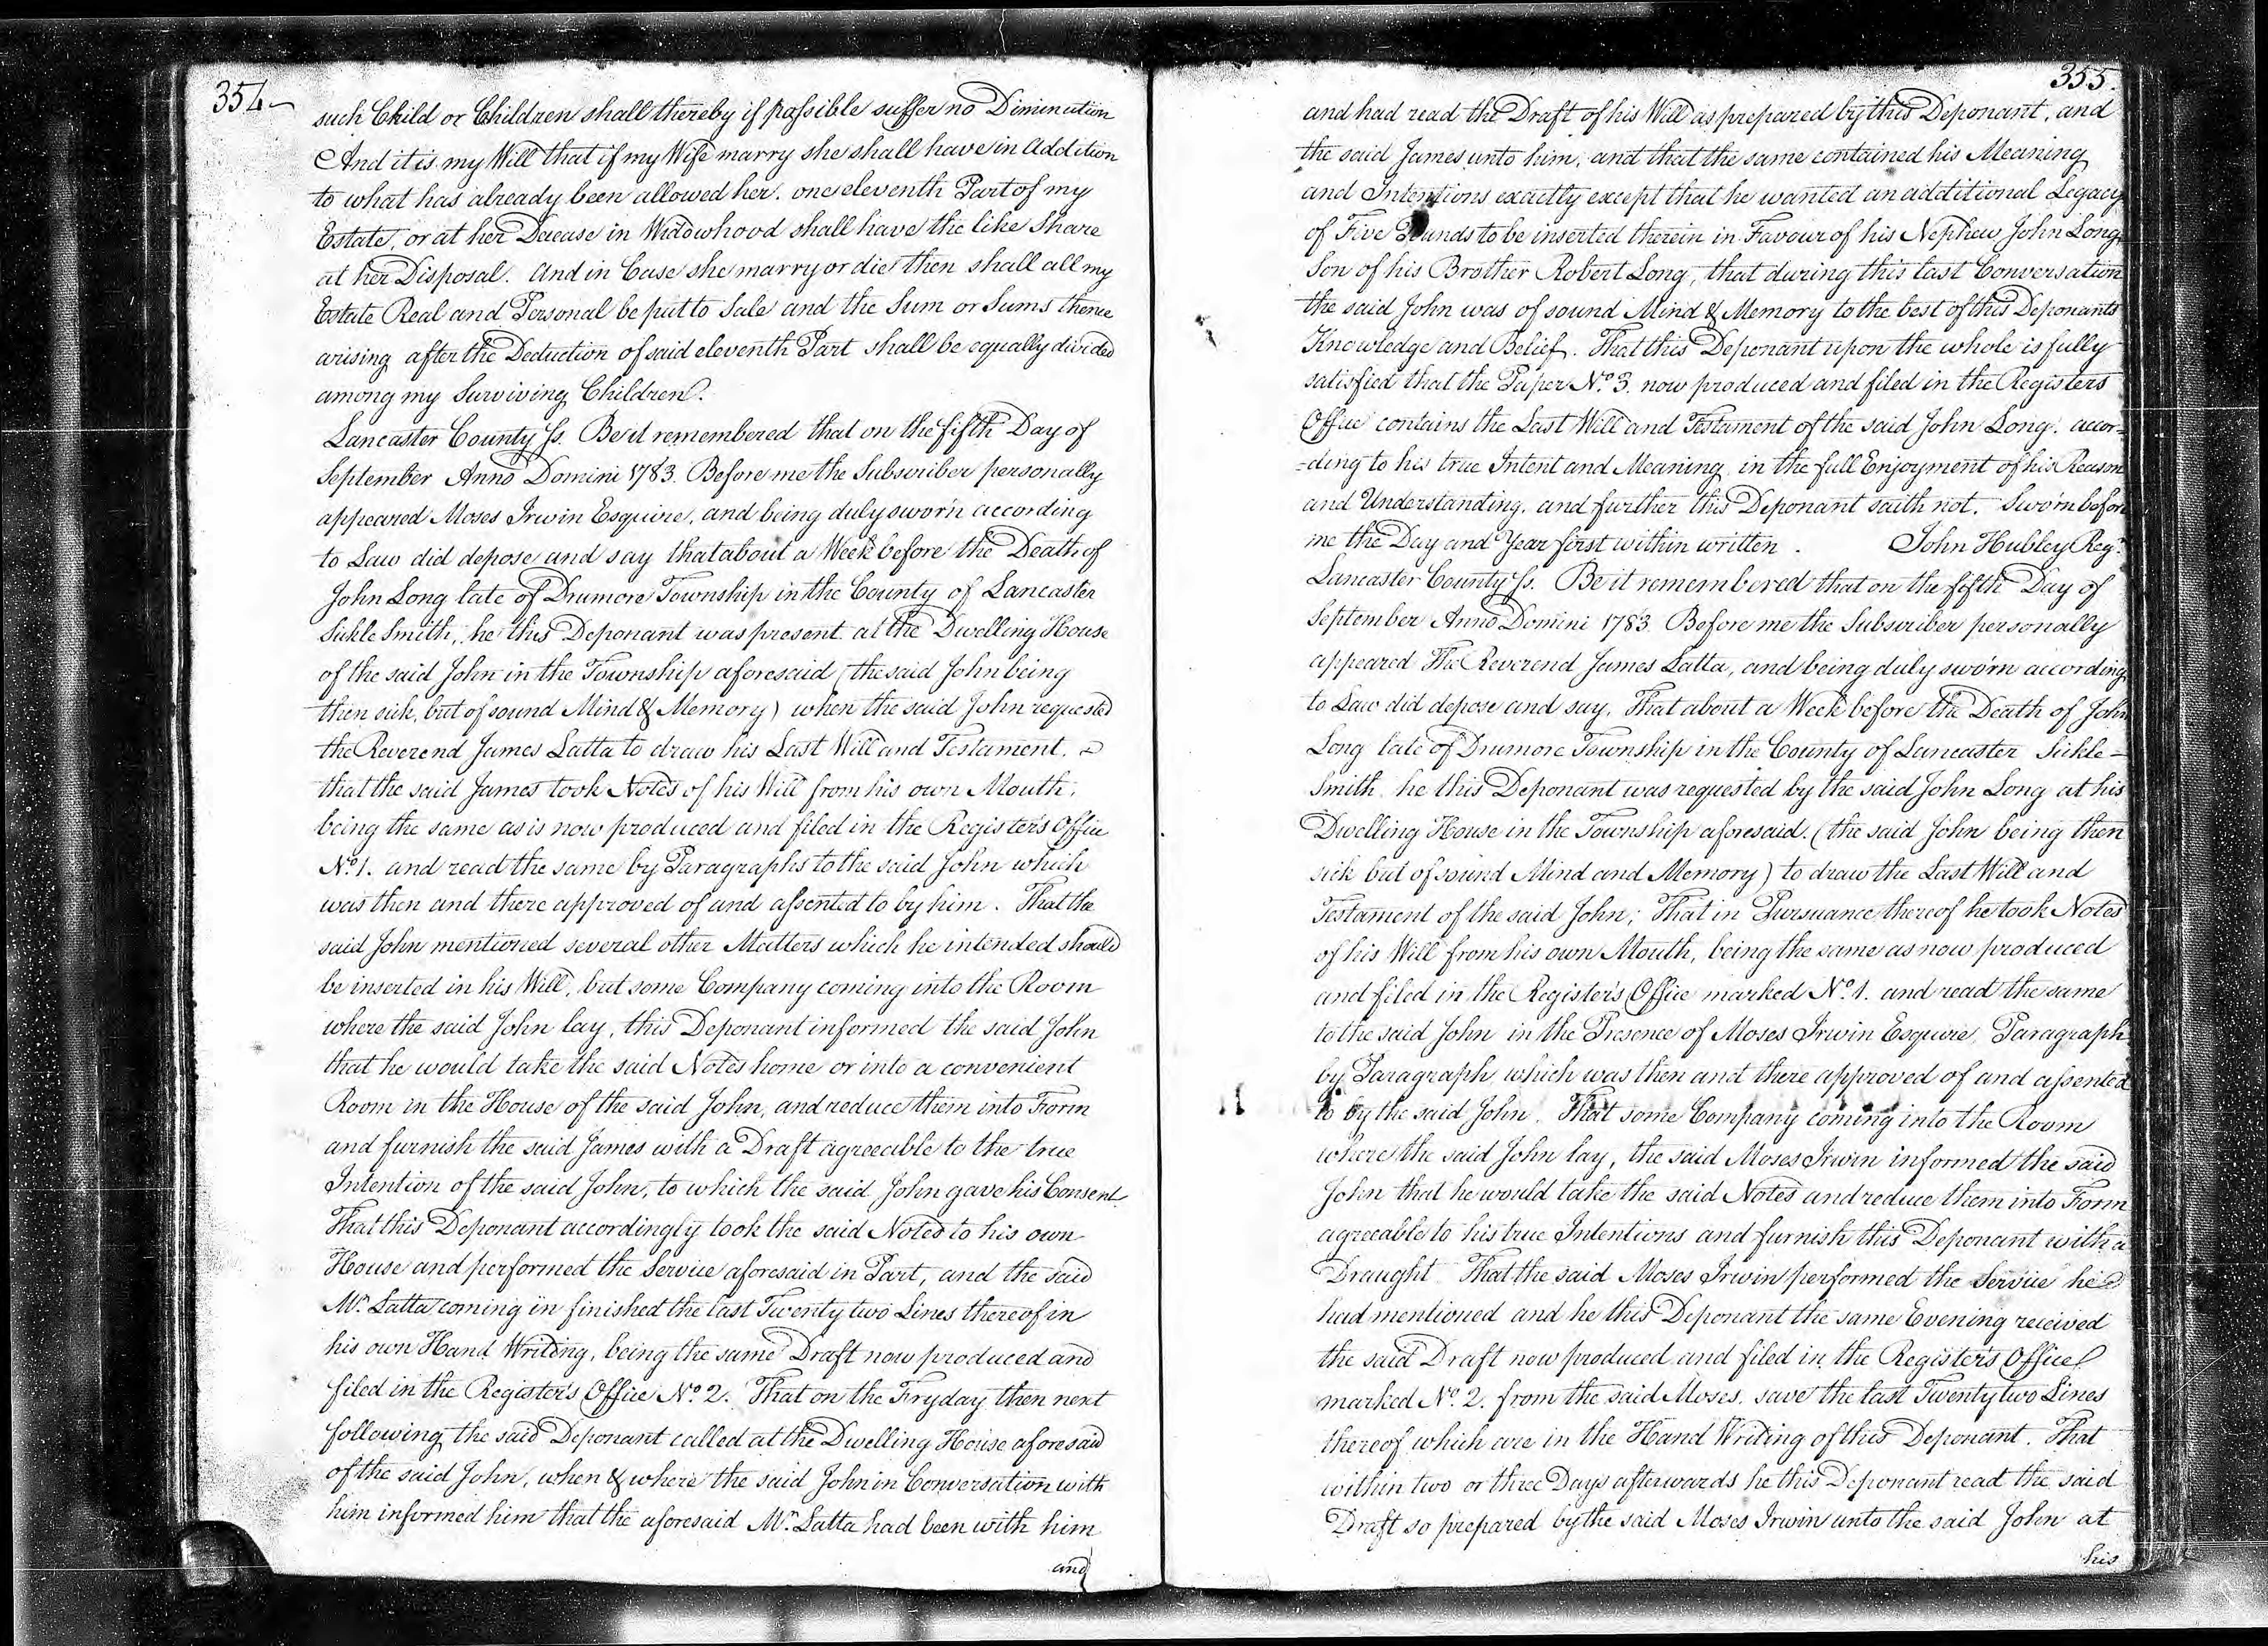 354
such Child or Children shall thereby if possible suffer no Diminution
And it is my Will that if my Wife marry she shall have in Addition
to what has already been allowed her. one eleventh Part of my
Estate, or at her Decease in Widowhood shall have the like Share
at her Disposal. And in Case she marry or die then shall all my
Estate Real and Personal be put to Sale and the Sum or Sums thence
arising after the Deduction of said eleventh Part shall be equally divided
among my Surviving Children.
Lancaster County ss. Be it remembered that on the fifth Day of
September Anno Domini 1783. Before me the Subscriber personally
appeared Moses Irwin Esquire, and being duly sworn according
to Law did depose and say that about a Week before the Death of
John Long late of Drumore Township in the County of Lancaster
Sickle Smith, he this Deponant was present at the Dwelling House
of the said John in the Township aforesaid (the said John being
then sick, but of sound Mind & Memory) when the said John requested
the Reverend James Latta to draw his Last Will and Testament.
that the said James took Notes of his Will from his own Mouth,
being the same as is now produced and filed in the Register's Office
No. 1. and read the same by Paragraphs to the said John which
was then and there approved of and assented to by him. That the
said John mentioned several other Matters which he intended should
be inserted in his Will, but some Company coming into the Room
where the said John lay, this Deponant informed the said John
that he would take the said Notes home or into a convenient
Room in the House of the said John, and reduce them into Form
and furnish the said James with a Draft agreeable to the true
Intention of the said John, to which the said John gave his Consent.
That this Deponant accordingly took the said Notes to his own
House and performed the Service aforesaid in Part, and the said
Mr. Latta coming in finished the last Twenty two Lines thereof in
his own Hand Writing, being the same Draft now produced and
filed in the Register's Office No. 2. That on the Fryday then next
following the said Deponant called at the Dwelling House aforesaid
of the said John, when & where the said John in Conversation with
him informed him that the aforesaid Mr. Latta had been with him
and
355.
and had read the Draft of his Will as prepared by this Deponant, and
the said James unto him, and that the same contained his Meaning
and Intentions exactly except that he wanted an additional Legacy
of Five Pounds to be inserted therein in Favour of his Nephew John Long
Son of his Brother Robert Long, that during this last Conversation
the said John was of sound Mind & Memory to the best of this Deponants
Knowledge and Belief. That this Deponant upon the whole is fully
satisfied that the Paper No. 3. now produced and filed in the Registers
Office contains the Last Will and Testament of the said John Long. accor=
=ding to his true Intent and Meaning, in the full Enjoyment of his Reason
and Understanding. and further this Deponant saith not. Sworn before
me the Day and Year first within written. John Hubley Regr.
Lancaster County ss. Be it remembered that on the fifth Day of
September Anno Domini 1783. Before me the Subscriber personally
appeared The Reverend James Latta, and being duly sworn according
to Law did depose and say, That about a Week before the Death of John
Long late of Drumore Township in the County of Lancaster Sickle=
Smith he this Deponant was requested by the said John Long at his
Dwelling House in the Township aforesaid. (the said John being then
sick but of sound Mind and Memory) to draw the Last Will and
Testament of the said John; That in Pursuance thereof he took Notes
of his Will from his own Mouth, being the same as now produced
and filed in the Register's Office marked No. 1. and read the same
to the said John in the Presence of Moses Irwin Esquire, Paragraph
by Paragraph which was then and there approved of and assented
to by the said John. That some Company coming into the Room
where the said John lay, the said Moses Irwin informed the said
John that he would take the said Notes and reduce them into Form
agreeable to his true Intentions and furnish this Deponant with a
Draught That the said Moses Irwin performed the Service he
had mentioned and he this Deponant the same Evening received
the said Draft now produced and filed in the Register's Office
marked No. 2. from the said Moses, save the last Twenty two Lines
thereof which are in the Hand Writing of this Deponant. That
within two or three Days afterwards he this Deponant read the said
Draft so prepared by the said Moses Irwin unto the said John at
his